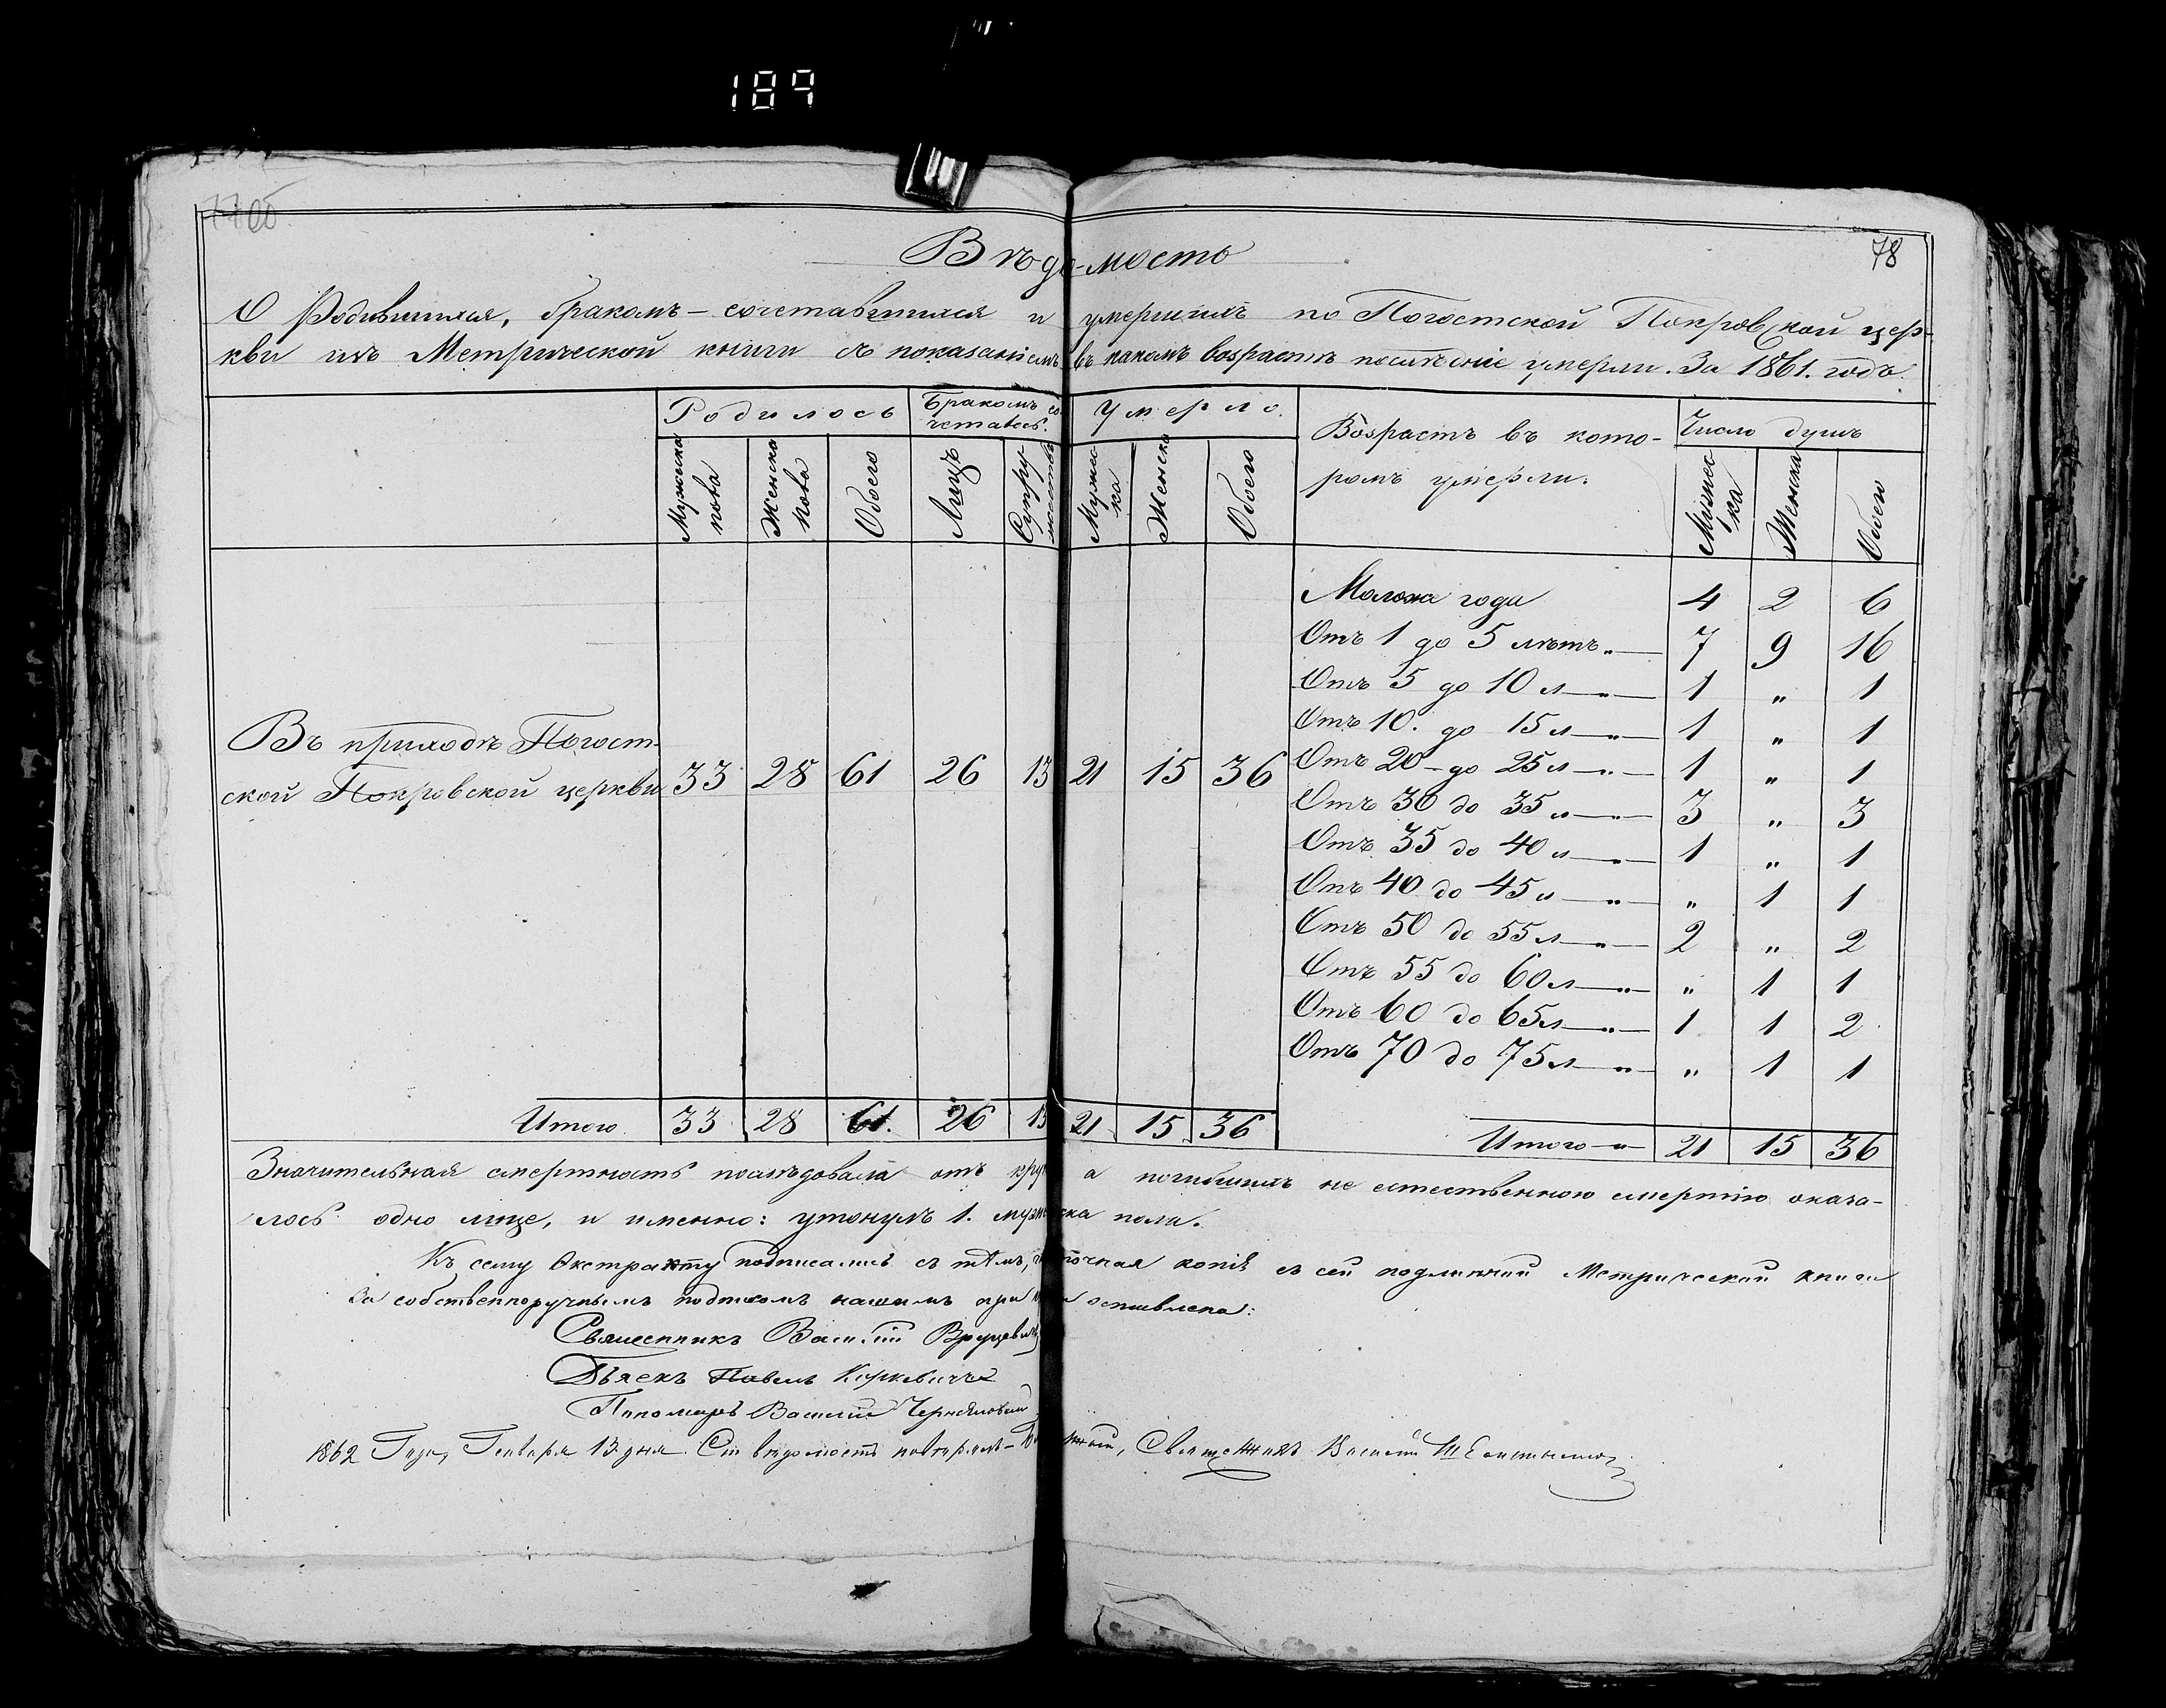 189
78
Вѣдомость
О Родившихся, бракомъ-сочетавшихся и умершихъ по Погостской Покровской цер-
кви изъ Метрической книги съ показаніемъ въ какомъ возрастѣ послѣдніе умерли. За 1861. годъ.
Родилось Бракомъ со- Умерло. Возрастъ въ кото- Число душъ
четалось. ромъ умерли.
Мужеска пола Женска пола Обоего Лицъ Супружествъ Мужеска Женска Обоего Мужеска Женска Обоего
Моложе года 4 2 6
Отъ 1 до 5 лѣтъ „ 7 9 16
Отъ 5 до 10 л „ 1 „ 1
Отъ 10. до 15 л „ 1 „ 1
Отъ 20 до 25 л „ 1 „ 1
Отъ 30 до 35 л „ 3 „ 3
Отъ 35 до 40 л „ 1 „ 1
Отъ 40 до 45 л „ „ 1 1
Отъ 50 до 55 л „ 2 „ 2
Отъ 55 до 60 л „ „ 1 1
Отъ 60 до 65 л „ 1 1 2
Отъ 70 до 75 л „ „ 1 1
Въ приходѣ Погост-
ской Покровской церкви 33 28 61 26 13 21 15 36
Итого 33 28 61. 26 13 21 15 36
Итого „ 21 15 36
Значительная смертность послѣдовала отъ а погибшихъ не естественною смертію оказа-
лось одно лице, и именно: утонулъ 1. мужеска пола.
Къ сему Экстракту подписались съ тѣмъ, точная копія съ сей подлинной Метрической книги
За собственноручнымъ подписомъ нашимъ при оставлена:
Священникъ Василій
Дьякъ Павелъ
Пономарь Василій
1862 Года, Генваря 13 дня Священникъ Василій